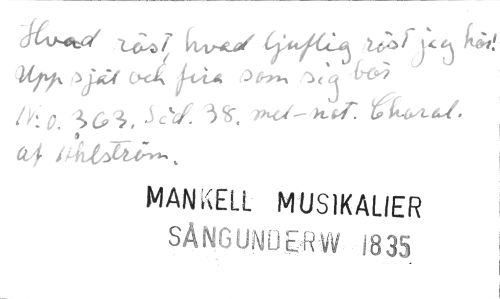 Hvad röst, hvad ljuflig röst jag hör!
Upp själ och fira som sig bör
No. 363. Söd. 38. mel-not. Choral.
af Ahlström.
MANKELL MUSIKALIER
SÅNGUNDERW 1835